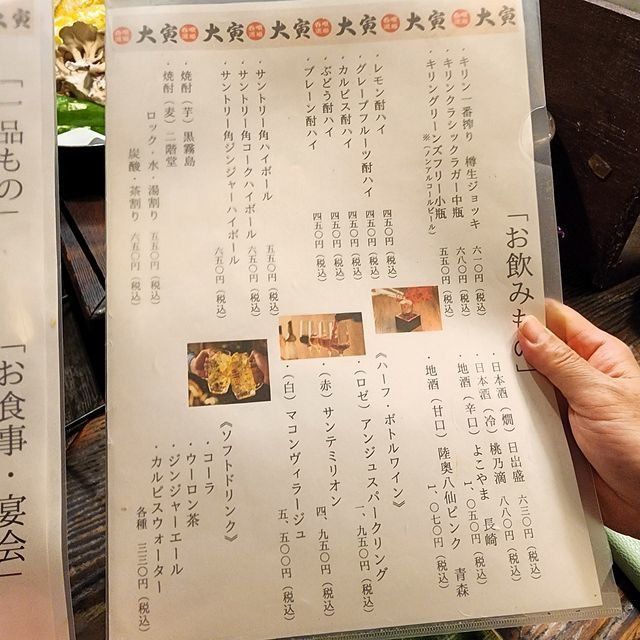 大寅 大寅 大寅 大寅 大寅
「お飲みもの」
・キリン一番搾り 樽生ジョッキ 六一〇円（税込）
・キリンクラシックラガー中瓶 六八〇円（税込）
・キリングリーンズフリー小瓶 五五〇円（税込）
※（ノンアルコールビール）
・レモン酎ハイ 四五〇円（税込）
・グレープフルーツ酎ハイ 四五〇円（税込）
・カルピス酎ハイ 四五〇円（税込）
・ぶどう酎ハイ 四五〇円（税込）
・プレーン酎ハイ 四五〇円（税込）
・サントリー角ハイボール 五五〇円（税込）
・サントリー角コークハイボール 六五〇円（税込）
・サントリー角ジンジャーハイボール 六五〇円（税込）
・焼酎（芋）黒霧島
・焼酎（麦）二階堂
ロック・水・湯割り 五五〇円（税込）
炭酸・茶割り 六五〇円（税込）
・日本酒（燗）日出盛 六三〇円（税込）
・日本酒（冷）桃乃滴 八八〇円（税込）
・地酒（辛口）よこやま 長崎
一、〇五〇円（税込）
・地酒（甘口）陸奥八仙ピンク 青森
一、〇七〇円（税込）
《ハーフ・ボトルワイン》
・（ロゼ）アンジュスパークリング
一、九五〇円（税込）
・（赤）サンテミリオン
四、九五〇円（税込）
・（白）マコンヴィラージュ
五、五〇〇円（税込）
《ソフトドリンク》
・コーラ
・ウーロン茶
・ジンジャーエール
・カルピスウォーター
各種 三三〇円（税込）
「一品もの」
「お食事・宴会」